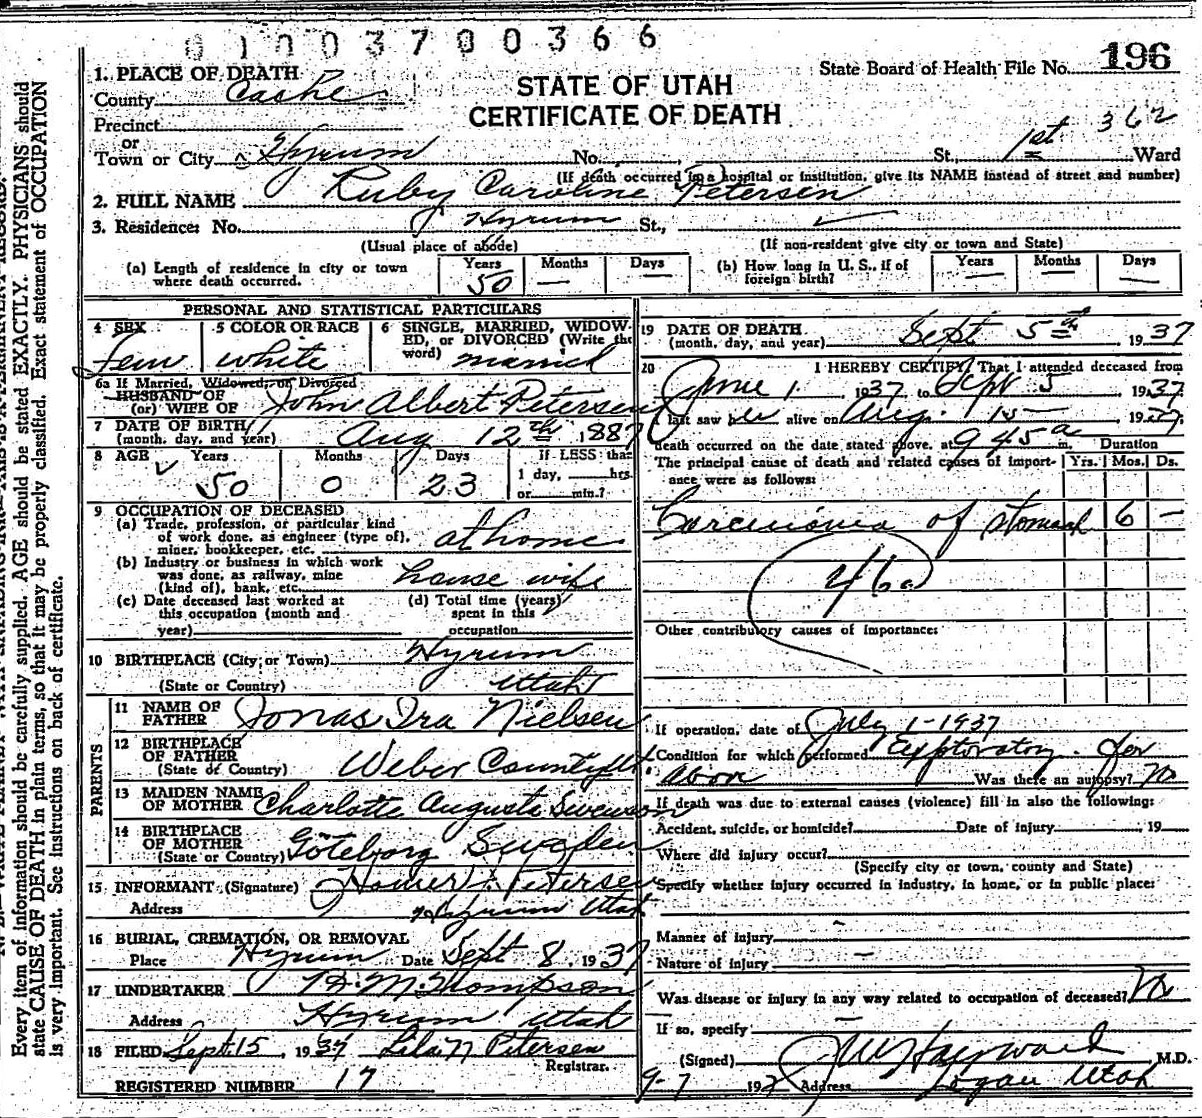 0100370 0366
State Board of Health File No. 196
1. PLACE OF DEATH
County Cache
STATE OF UTAH
CERTIFICATE OF DEATH
Precinct
or
362
Town or City Hyrum No. St., 1st Ward
(If death occurred in a hospital or institution, give its NAME instead of street and number)
2. FULL NAME Ruby Caroline Petersen
3. Residence: No. Hyrum St.,
(Usual place of abode) (If non-resident give city or town and State)
(a) Length of residence in city or town where death occurred. Years 50 Months — Days —
(b) How long in U. S., if of foreign birth? Years — Months — Days —
PERSONAL AND STATISTICAL PARTICULARS
4 SEX Fem
5 COLOR OR RACE white
6 SINGLE, MARRIED, WIDOWED, or DIVORCED (Write the word) married
6a If Married, Widowed, or Divorced
HUSBAND OF
(or) WIFE OF John Albert Petersen
7 DATE OF BIRTH (month, day, and year) Aug 12th 1887
8 AGE Years 50 Months 0 Days 23 If LESS than 1 day, hrs. or min.?
9 OCCUPATION OF DECEASED
(a) Trade, profession, or particular kind of work done, as engineer (type of), miner, bookkeeper, etc. at home
(b) Industry or business in which work was done, as railway, mine (kind of), bank, etc. house wife
(c) Date deceased last worked at this occupation (month and year)
(d) Total time (years) spent in this occupation
10 BIRTHPLACE (City or Town) Hyrum
(State or Country) Utah
PARENTS
11 NAME OF FATHER Jonas Ira Nielsen
12 BIRTHPLACE OF FATHER (State or Country) Weber County Ut
13 MAIDEN NAME OF MOTHER Charlotte Augusta Swenson
14 BIRTHPLACE OF MOTHER (State or Country) Göteborg Sweden
15 INFORMANT (Signature) Homer Petersen
Address Hyrum Utah
16 BURIAL, CREMATION, OR REMOVAL
Place Hyrum Date Sept 8, 1937
17 UNDERTAKER H. M. Thompson
Address Hyrum Utah
18 FILED Sept. 15, 1937 Lila N Petersen
Registrar.
REGISTERED NUMBER 17
19 DATE OF DEATH (month, day, and year) Sept 5th 1937
20 I HEREBY CERTIFY, That I attended deceased from
June 1, 1937 to Sept 5 1937
I last saw her alive on Aug. 15 1937,
death occurred on the date stated above, at 9 45 a m. Duration
The principal cause of death and related causes of importance were as follows: Yrs. Mos. Ds.
Carcinoma of stomach 6 —
46a
Other contributory causes of importance:
If operation, date of July 1-1937
Condition for which performed Exploratory for
above Was there an autopsy? no
If death was due to external causes (violence) fill in also the following:
Accident, suicide, or homicide? Date of injury , 19
Where did injury occur?
(Specify city or town, county and State)
Specify whether injury occurred in industry, in home, or in public place:
Manner of injury
Nature of injury
Was disease or injury in any way related to occupation of deceased? no
If so, specify
(Signed) J W Hayward M.D.
9-7 192 Address Logan Utah
Every item of information should be carefully supplied. AGE should be stated EXACTLY. PHYSICIANS should
state CAUSE OF DEATH in plain terms, so that it may be properly classified. Exact statement of OCCUPATION
is very important. See instructions on back of certificate.